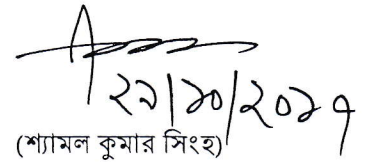 ২৯/১০/২০১৭
(শ্যামল কুমার সিংহ)